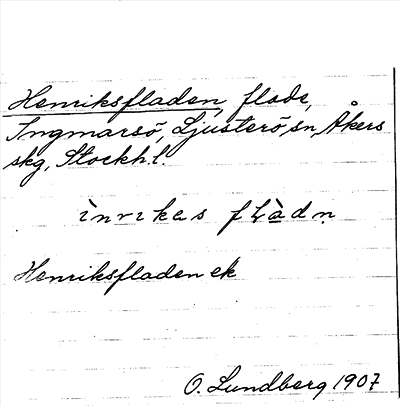 Henriksfladen, flade,
Ingmarsö, Ljusterö, sn, Åkers
skg, Stockh. l.
ìnrikas flàdn
Henriksfladen ek
O. Lundberg 1907